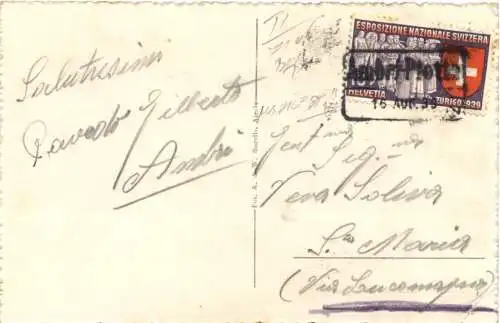 Salutissimi
Pavedo Gilberto
Ambri
ESPOSIZIONE NAZIONALE SVIZZERA
HELVETIA
ZURIGO 1939
Ambri-Piotta
Gent.ma Sig.na
Veva Soliva
Sta Maria
(Via Lucomagno)